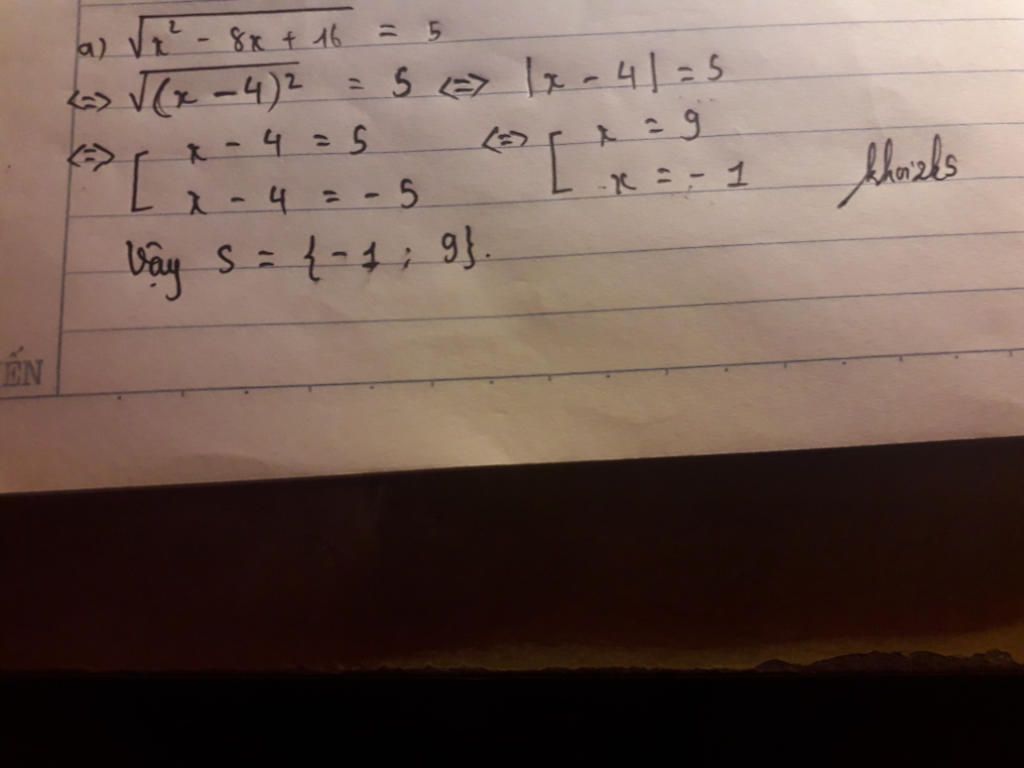 a) √(x² - 8x + 16) = 5
<=> √((x - 4)²) = 5 <=> |x - 4| = 5
<=> [ x - 4 = 5 <=> [ x = 9
x - 4 = - 5 x = - 1 khoizks
Vậy S = {-1 ; 9}.
ẾN